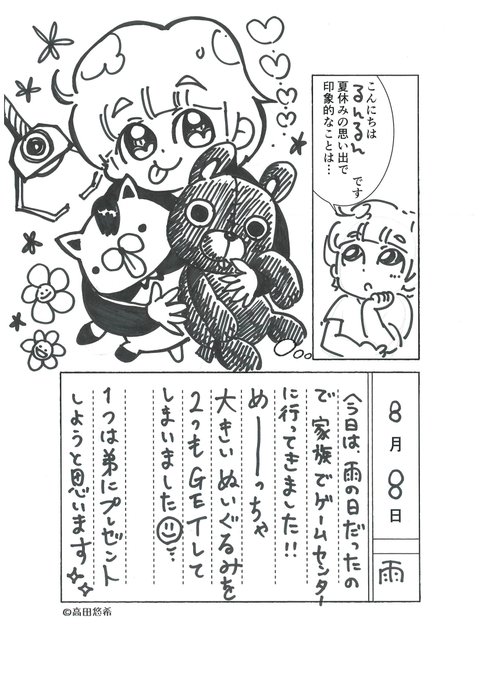 こんにちは
るんるん です
夏休みの思い出で
印象的なことは…
8月8日
雨
今日は、雨の日だったの
で 家族でゲームセンター
に行ってきました!!
めーーっちゃ
大きい ぬいぐるみを
2つも GETして
しまいました
1つは弟にプレゼント
しようと思います
©高田悠希